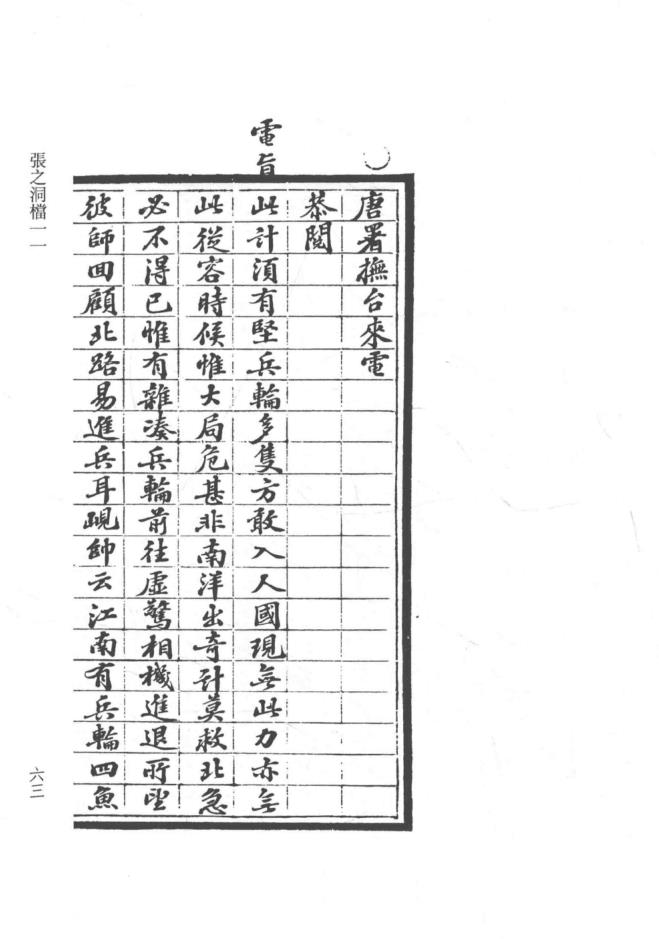 唐署撫台來電
恭閱
電旨
此計須有堅兵輪多隻方敢入人國現無此力亦無
此從容時候惟大局危甚非南洋出奇計莫救北急
必不得已惟有雜凑兵輪前往虛驚相機進退所望
彼師回顧北路易進兵耳峴帥云江南有兵輪四魚
張之洞檔一一
六三